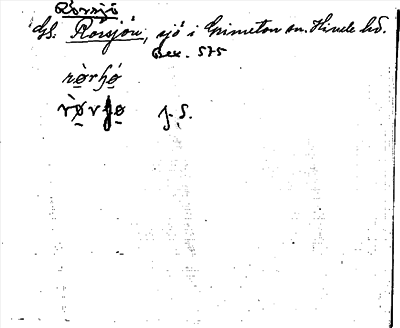 Rorsjö
Gl. Rorsjön, sjö i Grimeton sn. Himle hd.
Bex. 575
rø̀rʃó̱
rø̀rʃo̱ J.S.